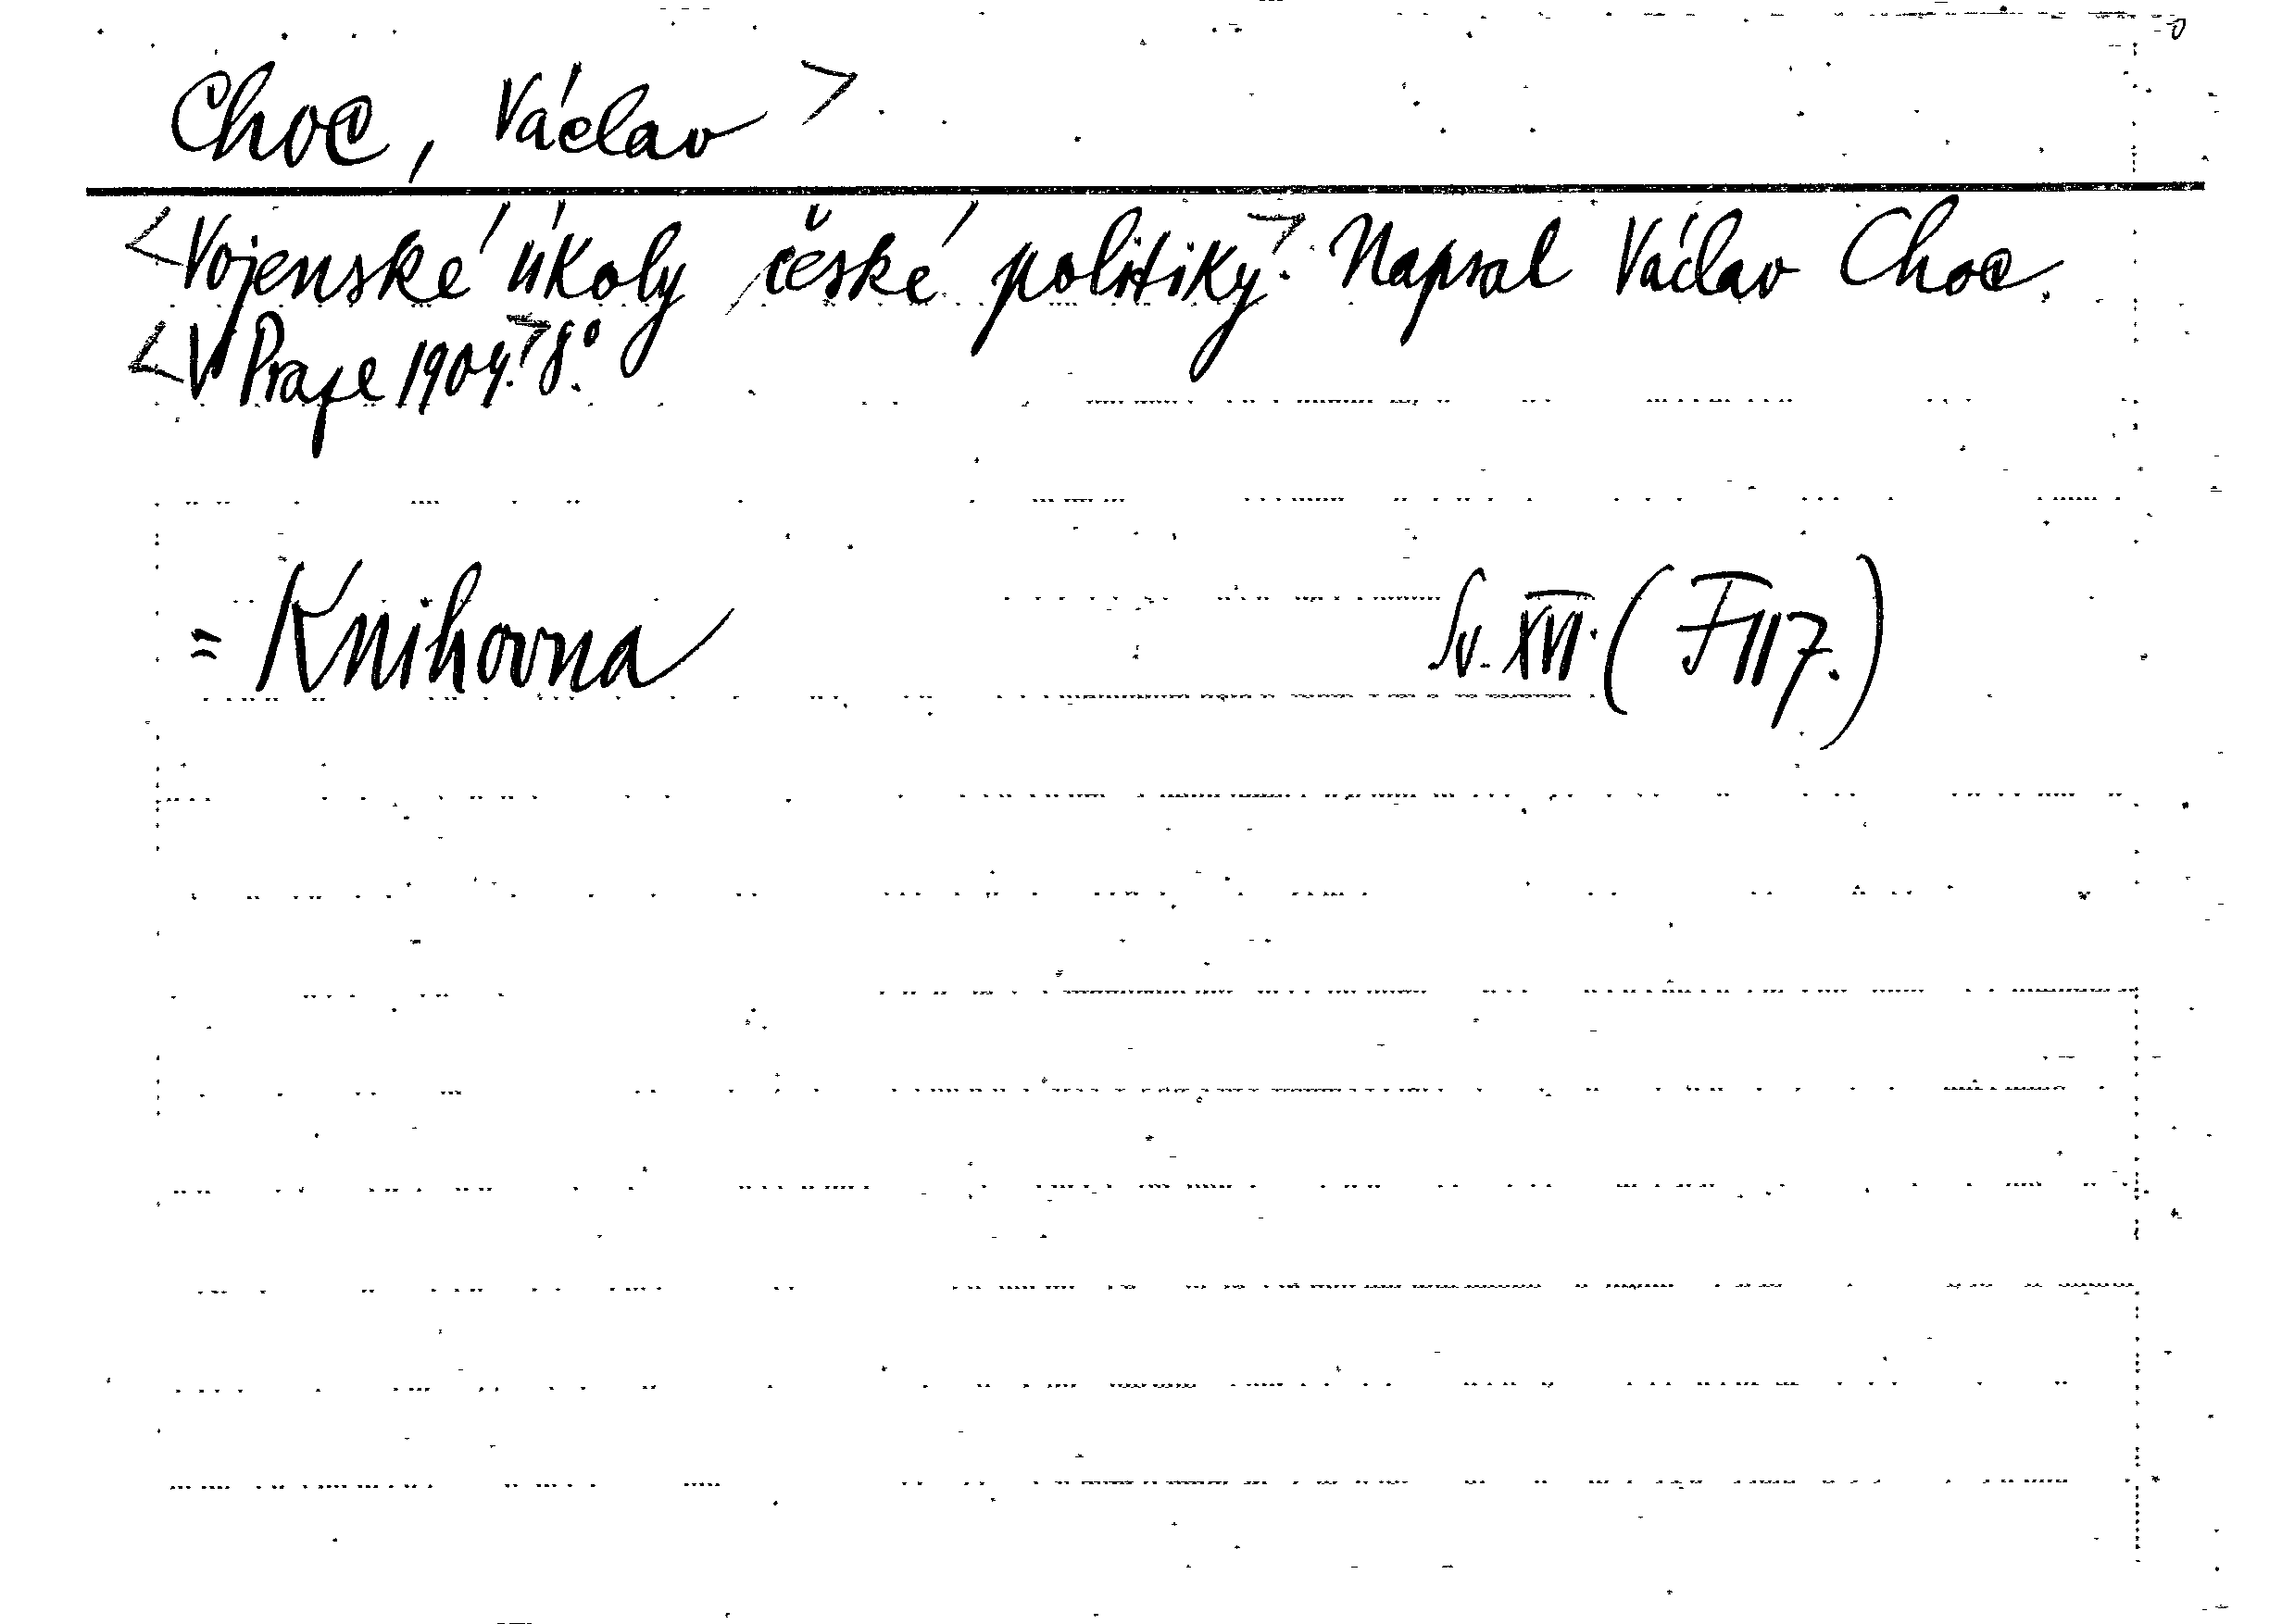 Choc, Václav >
<Vojenské úkoly české politiky.> Napsal Václav Choc.
<V Praze 1904.> 8.°
= Knihovna Sv. XVI. (F 117.)